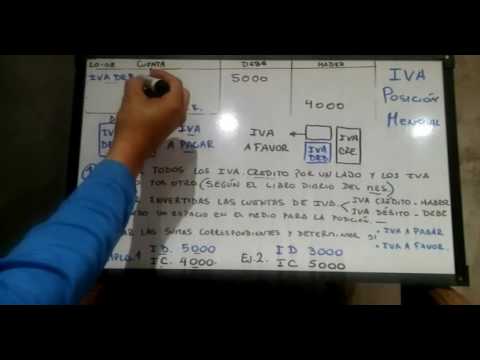 20-08 CUENTA DEBE HABER
IVA DEB 5000
4000
IVA
POSICIÓN
MENSUAL
IVA
A PAGAR
IVA
A FAVOR
IVA
DEB
IVA
CRE
TODOS LOS IVA CRÉDITO POR UN LADO Y LOS IVA
POR OTRO (SEGÚN EL LIBRO DIARIO DEL MES)
INVERTIDAS LAS CUENTAS DE IVA IVA CRÉDITO - HABER
UN ESPACIO EN EL MEDIO PARA LA POSICIÓN IVA DÉBITO - DEBE
LAS SUMAS CORRESPONDIENTES Y DETERMINAR SI IVA A PAGAR
IVA A FAVOR
1 I.D. 5000 EJ.2. I D 3000
I C. 4000 I C 5000